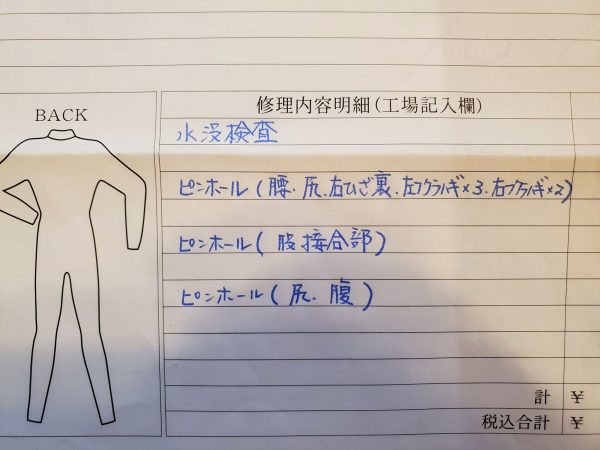 BACK
修理内容明細(工場記入欄)
水没検査
ピンホール(腰、尻、右ひざ裏、左フクラハギ×3、右フクラハギ×2)
ピンホール(股接合部)
ピンホール(尻、腹)
計 ¥
税込合計 ¥